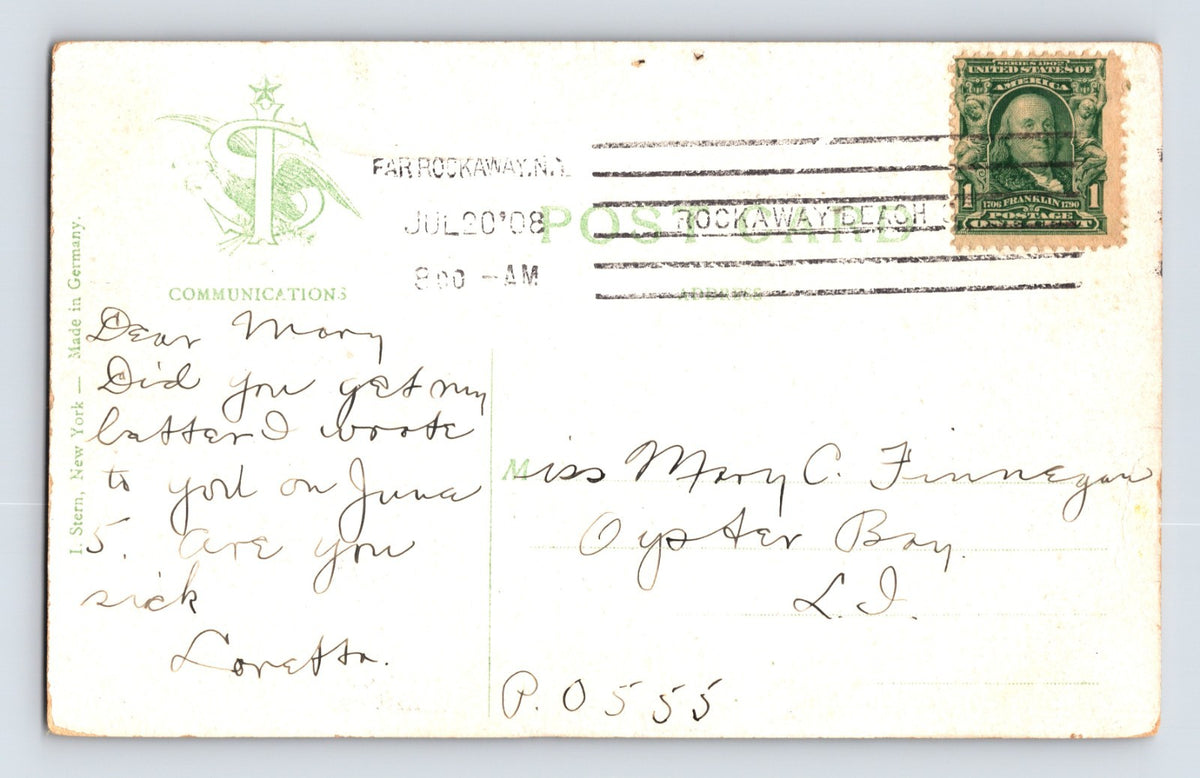 I. Stern, New York — Made in Germany.
COMMUNICATIONS
FAR ROCKAWAY, N.Y.
JUL 20 '08
8 00 — AM
ROCKAWAY BEACH
POST CARD
ADDRESS
SERIES 1902
UNITED STATES OF
AMERICA
1 1
1706 FRANKLIN 1790
POSTAGE
ONE CENT
Dear Mary
Did you get my
letter I wrote
to you on June
5. are you
sick
Loretta.
Miss Mary C. Finnegan
Oyster Bay.
L. I.
P. O 555